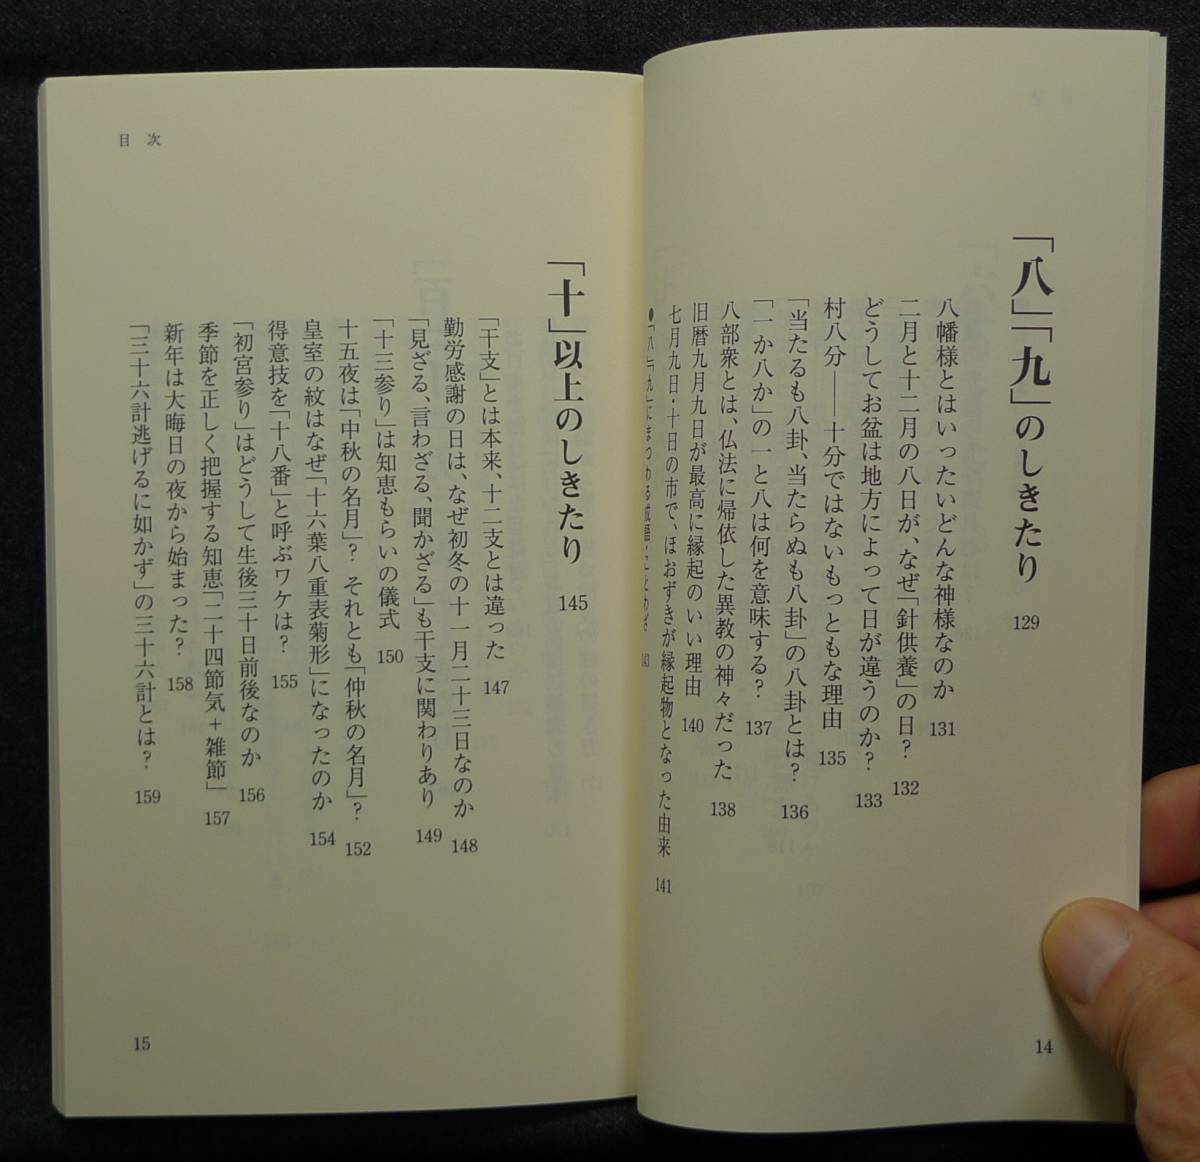 「八」「九」のしきたり 129
八幡様とはいったいどんな神様なのか 131
二月と十二月の八日が、なぜ「針供養」の日？ 132
どうしてお盆は地方によって日が違うのか？ 133
村八分――十分ではないもっともな理由 135
「当たるも八卦、当たらぬも八卦」の八卦とは？ 136
「一か八か」の一と八は何を意味する？ 137
八部衆とは、仏法に帰依した異教の神々だった 138
旧暦九月九日が最高に縁起のいい理由 140
七月九日・十日の市で、ほおずきが縁起物となった由来 141
●「八」「九」にまつわる成語・ことわざ 143
14
目次
「十」以上のしきたり 145
「干支」とは本来、十二支とは違った 147
勤労感謝の日は、なぜ初冬の十一月二十三日なのか 148
「見ざる、言わざる、聞かざる」も干支に関わりあり 149
「十三参り」は知恵もらいの儀式 150
十五夜は「中秋の名月」？ それとも「仲秋の名月」？ 152
皇室の紋はなぜ「十六葉八重表菊形」になったのか 154
得意技を「十八番」と呼ぶワケは？ 155
「初宮参り」はどうして生後三十日前後なのか 156
季節を正しく把握する知恵「二十四節気＋雑節」 157
新年は大晦日の夜から始まった？ 158
「三十六計逃げるに如かず」の三十六計とは？ 159
15